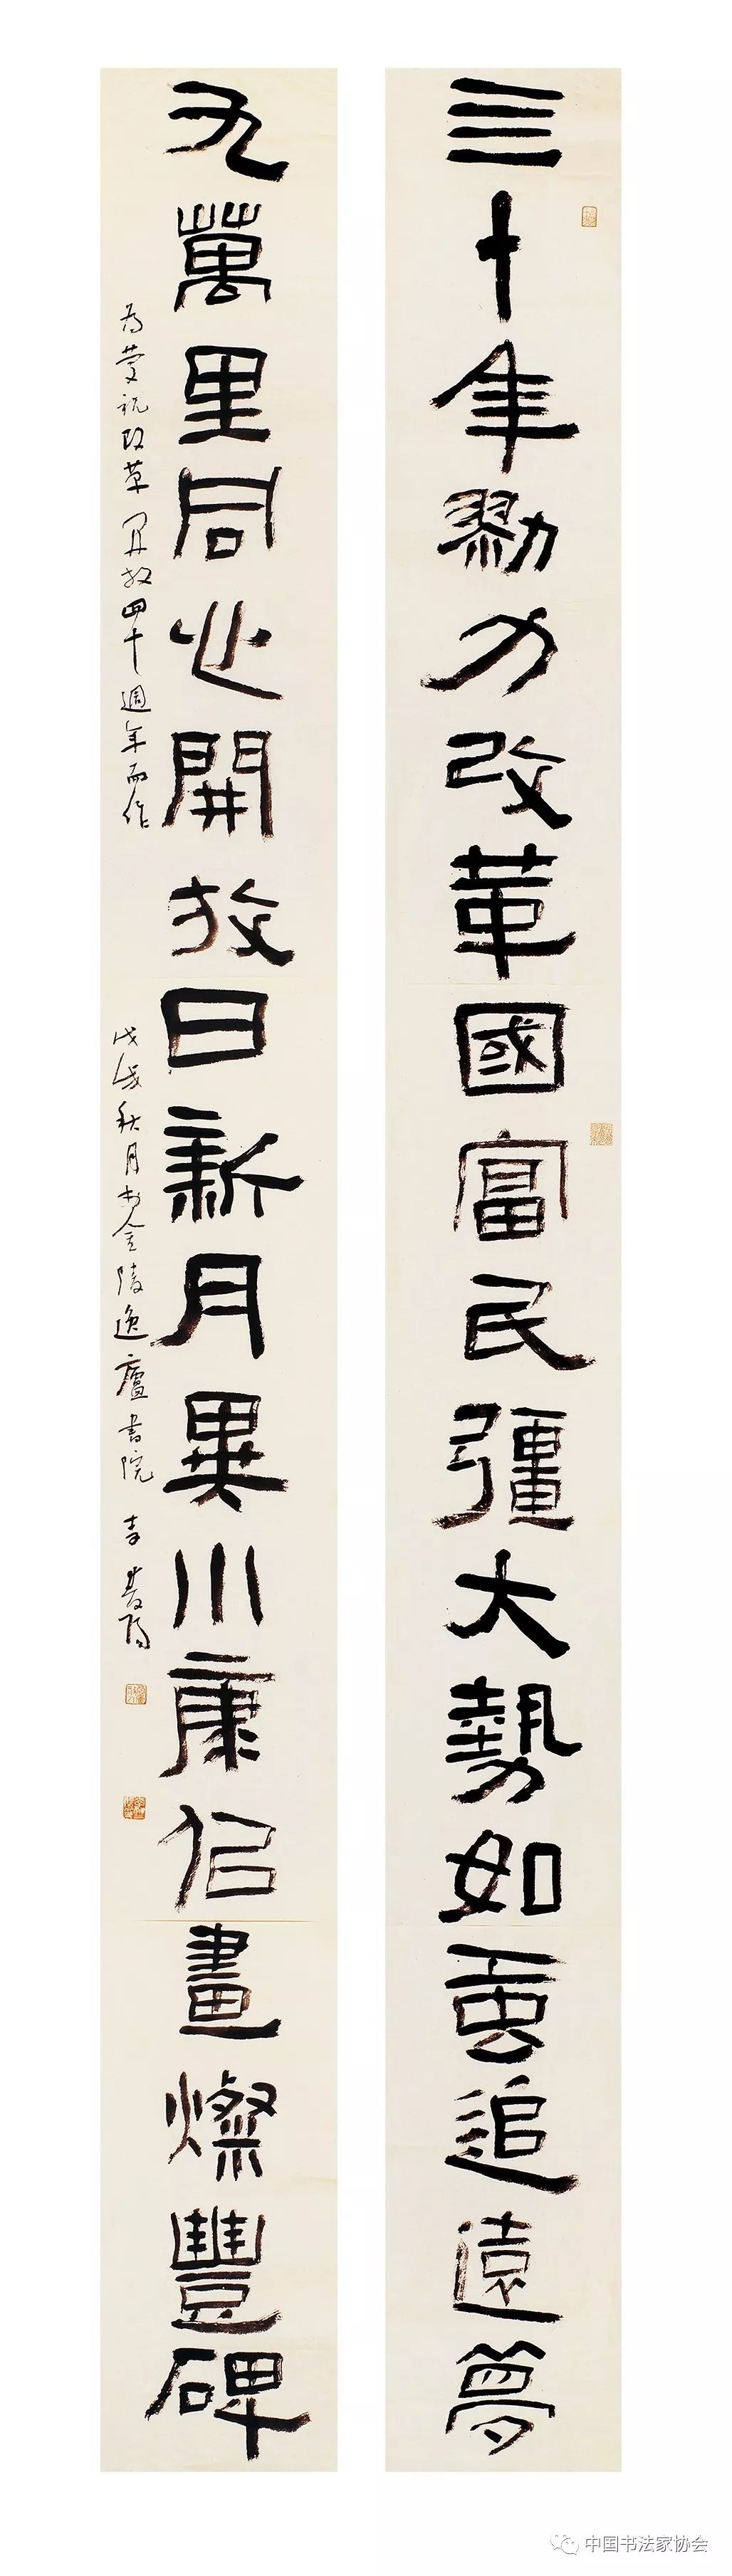 亖十年勠力改革國富民彊大勢如虹追遠夢
九萬里同心開放日新月異小康佀畫燦豐碑
為慶祝改革開放四十週年而作
戊戌秋月於金陵逸廬書院
中国书法家协会